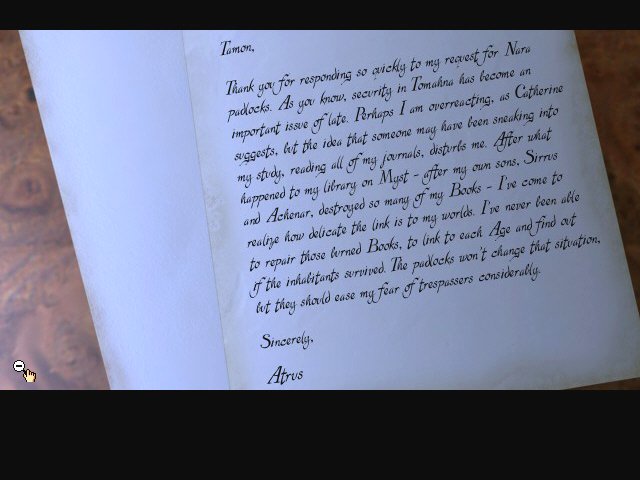 Tamon,
Thank you for responding so quickly to my request for Nara
padlocks. As you know, security in Tomahna has become an
important issue of late. Perhaps I am overreacting, as Catherine
suggests, but the idea that someone may have been sneaking into
my study, reading all of my journals, disturbs me. After what
happened to my library on Myst - after my own sons, Sirrus
and Achenar, destroyed so many of my Books - I've come to
realize how delicate the link is to my worlds. I've never been able
to repair those burned Books, to link to each Age and find out
if the inhabitants survived. The padlocks won't change that situation,
but they should ease my fear of trespassers considerably.
Sincerely,
Atrus